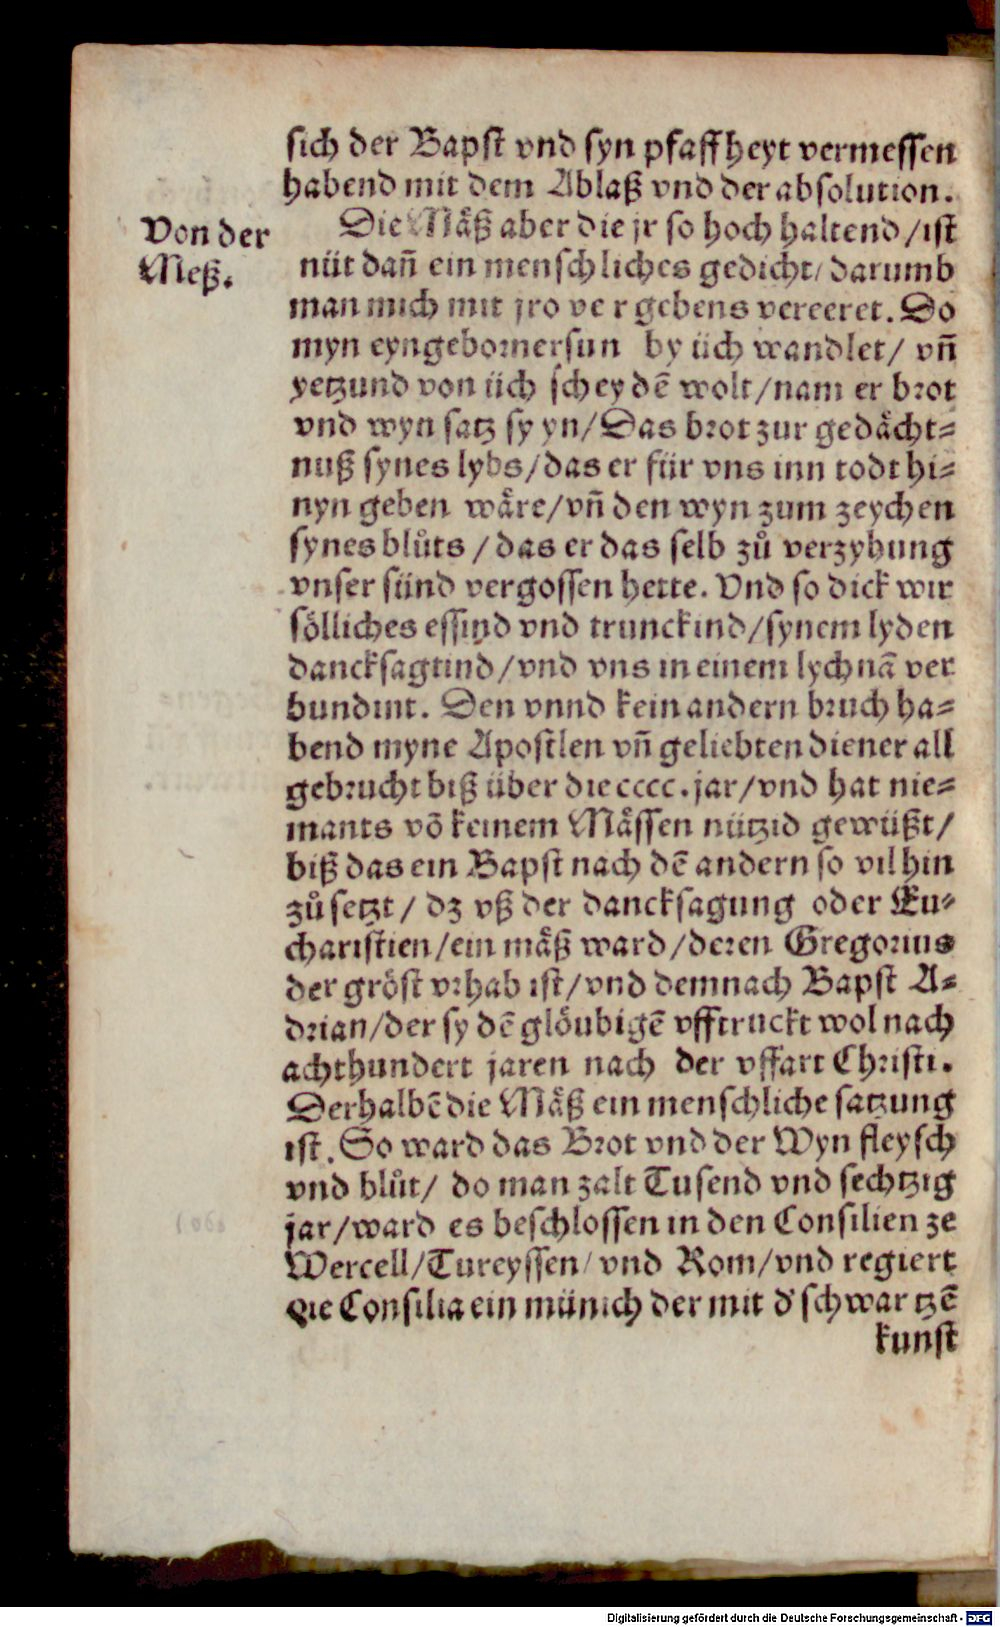 sich der Bapst vnd syn pfaffheyt vermessen
habend mit dem Ablaß vnd der absolution.
Von der
Meß.
Die Mäß aber die jr so hoch haltend/ist
nüt dañ ein menschliches gedicht/darumb
man mich mit jro vergebens vereeret. Do
myn eyngebornersun by üch wandlet/ vñ
yetzund von üch scheydē wolt/nam er brot
vnd wyn satz sy yn/Das brot zur gedächt=
nuß synes lybs/das er für vns inn todt hi=
nyn geben wäre/vñ den wyn zum zeychen
synes blůts /das er das selb zů verzyhung
vnser sünd vergossen hette. Vnd so dick wir
sölliches essind vnd trunckind/synem lyden
dancksagtind/vnd vns in einem lychnā ver
bundint. Den vnnd kein andern bruch ha=
bend myne Apostlen vñ geliebten diener all
gebrucht biß über die cccc.jar/vnd hat nie=
mants vō keinem Mässen nützid gewüßt/
biß das ein Bapst nach dē andern so vil hin
zů setzt/ dz vß der dancksagung oder Eu=
charistien/ein mäß ward/deren Gregorius
der gröst vrhab ist/vnd demnach Bapst A=
drian/der sy dē glöubigē vfftruckt wol nach
achthundert jaren nach der vffart Christi.
Derhalbē die Mäß ein menschliche satzung
ist. So ward das Brot vnd der Wyn fleysch
vnd blůt/ do man zalt Tusend vnd sechtzig
jar/ward es beschlossen in den Consilien ze
Wercell/Tureyssen/vnd Rom/vnd regiert
die Consilia ein münich der mit d' schwartzē
kunst
Digitalisierung gefördert durch die Deutsche Forschungsgemeinschaft - DFG